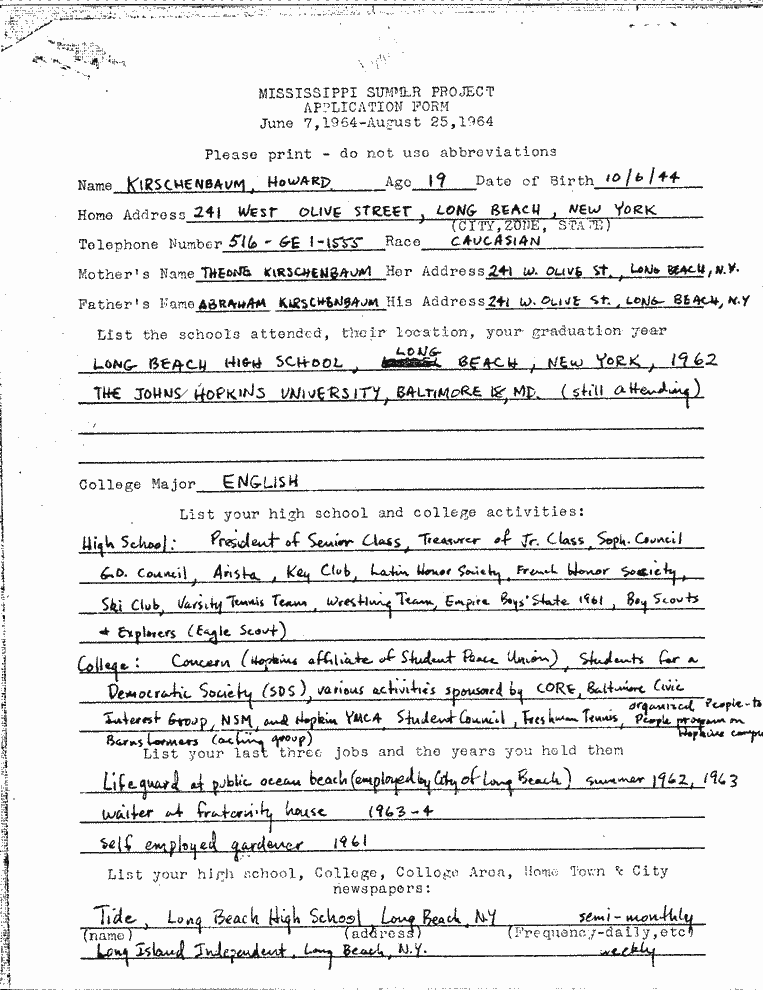 MISSISSIPPI SUMMER PROJECT
APPLICATION FORM
June 7,1964-August 25,1964
Please print - do not use abbreviations
Name KIRSCHENBAUM, HOWARD Age 19 Date of Birth 10/6/44
Home Address 241 WEST OLIVE STREET, LONG BEACH, NEW YORK
(CITY,ZONE, STATE)
Telephone Number 516 - GE 1-1555 Race CAUCASIAN
Mother's Name THEONE KIRSCHENBAUM Her Address 241 W. OLIVE ST., LONG BEACH, N.Y.
Father's Name ABRAHAM KIRSCHENBAUM His Address 241 W. OLIVE ST., LONG BEACH, N.Y
List the schools attended, their location, your graduation year
LONG BEACH HIGH SCHOOL, LONG BEACH, NEW YORK, 1962
THE JOHNS HOPKINS UNIVERSITY, BALTIMORE 18, MD. (still attending)
College Major ENGLISH
List your high school and college activities:
High School: President of Senior Class, Treasurer of Jr. Class, Soph. Council
G.O. Council, Arista, Key Club, Latin Honor Society, French Honor Society,
Ski Club, Varsity Tennis Team, Wrestling Team, Empire Boys' State 1961, Boy Scouts
+ Explorers (Eagle Scout)
College: Concern (Hopkins affiliate of Student Peace Union), Students for a
Democratic Society (SDS), various activities sponsored by CORE, Baltimore Civic
Interest Group, NSM, and Hopkin YMCA, Student Council, Freshman Tennis, organized People-to
People program on
Hopkins campu
Barnstormers (acting group)
List your last three jobs and the years you held them
Lifeguard at public ocean beach (employed by City of Long Beach) summer 1962, 1963
waiter at fraternity house 1963-4
self employed gardener 1961
List your high school, College, College Area, Home Town & City
newspapers:
Tide, Long Beach High School, Long Beach, NY semi-monthly
(name) (address) (Frequency-daily,etc)
Long Island Independent, Long Beach, N.Y. weekly